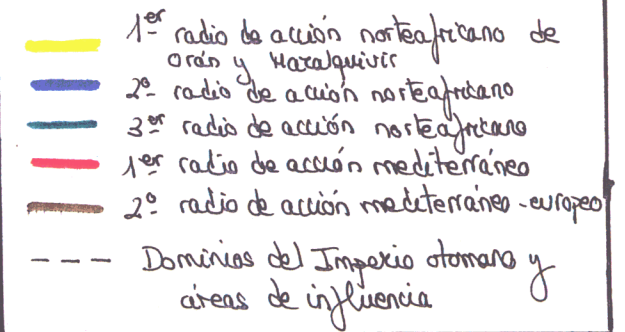 1er radio de acción norteafricano de
Orán y Mazalquivir
2º radio de acción norteafricano
3er radio de acción norteafricano
1er radio de acción mediterráneo
2º radio de acción mediterráneo-europeo
Dominios del Imperio otomano y
áreas de influencia